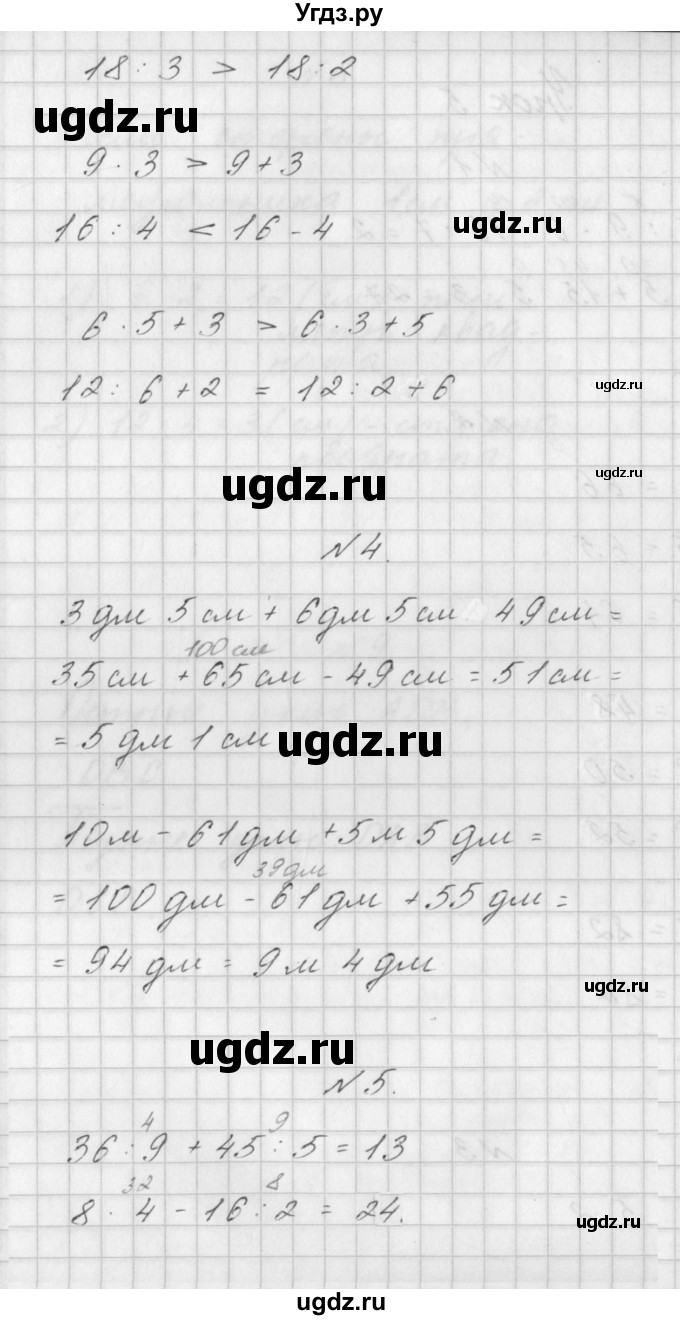 Угдз.ру
18 : 3 > 18 : 2
ugdz.ru
9 · 3 > 9 + 3
ugdz.ru
16 : 4 < 16 - 4
6 · 5 + 3 > 6 · 3 + 5
12 : 6 + 2 = 12 : 2 + 6
ugdz.ru
ugdz.ru
ugdz.ru
N 4.
3 дм 5 см + 6 дм 5 см 49 см =
100 см
35 см + 65 см - 49 см = 51 см =
= 5 дм 1 см
ugdz.ru
10 м - 61 дм + 5 м 5 дм =
39 дм
= 100 дм - 61 дм + 55 дм =
= 94 дм = 9 м 4 дм
ugdz.ru
ugdz.ru
N 5.
4 9
36 : 9 + 45 : 5 = 13
32 8
8 · 4 - 16 : 2 = 24.
ugdz.ru
ugdz.ru